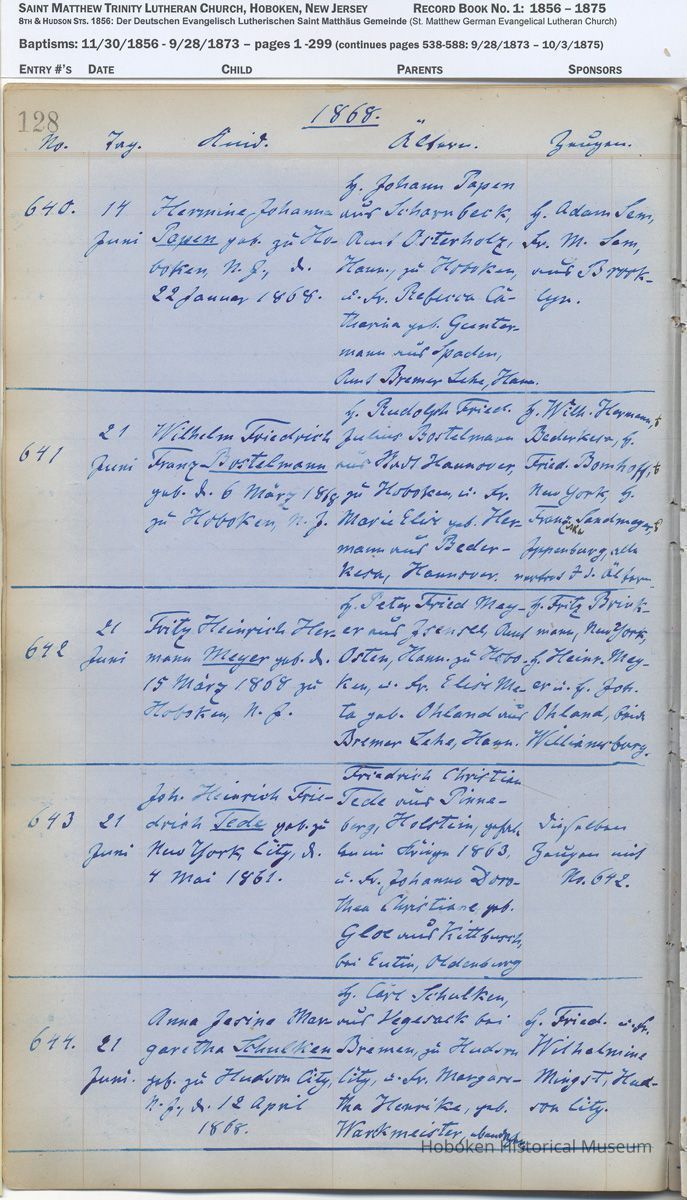 SAINT MATTHEW TRINITY LUTHERAN CHURCH, HOBOKEN, NEW JERSEY RECORD BOOK NO. 1: 1856 – 1875
8TH & HUDSON STS. 1856: Der Deutschen Evangelisch Lutherischen Saint Matthäus Gemeinde (St. Matthew German Evangelical Lutheran Church)
Baptisms: 11/30/1856 - 9/28/1873 – pages 1 -299 (continues pages 538-588: 9/28/1873 – 10/3/1875)
ENTRY #'S DATE CHILD PARENTS SPONSORS
128
1868.
No. Tag. Kind. Ältern. Zeugen.
640.
14
Juni
Hermine Johanna
Papen geb. zu Ho-
boken, N. J., d.
22 Januar 1868.
H. Johann Papen
aus Scharnbeck,
Amt Osterholz,
Hann., zu Hoboken,
u. Fr. Rebecca Ca-
tharina geb. Gunter-
mann aus Spaden,
Amt Bremer Lehe, Hann.
H. Adam Sem,
Fr. M. Sem,
aus Brook-
lyn.
641
21
Juni
Wilhelm Friedrich
Franz Bostelmann
geb. d. 6 März 1868
zu Hoboken, N. J.
H. Rudolph Fried.
Julius Bostelmann
aus Stadt Hannover,
zu Hoboken, u. Fr.
Marie Elise geb. Her-
mann aus Beder-
kesa, Hannover.
H. Wilh. Hermann,
Bederkesa, H.
Fried. Bomhoff,
New York, H.
Franz Sandmeyer,
642
21
Juni
Fritz Heinrich Her-
mann Meyer geb. d.
15 März 1868 zu
Hoboken, N. J.
H. Peter Fried Mey-
er aus Isensee, Amt
Osten, Hann. zu Hobo-
ken, u. Fr. Elise Me-
ta geb. Ohland aus
Bremer Lehe, Hann.
H. Fritz Brink-
mann, New York,
H. Heinr. Mey-
er u. H. Joh.
Ohland, beide
Williamsburg.
643
21
Juni
Joh. Heinrich Frie-
drich Tede geb. zu
New York City, d.
4 Mai 1861.
Friedrich Christian
Tede aus Pinne-
berg, Holstein, gefal-
len im Kriege 1863,
u. Fr. Johanna Doro-
thea Christiane geb.
Gloe aus
bei Eutin, Oldenburg
Dieselben
Zeugen mit
No. 642.
644.
21
Juni.
Anna Jesine Mar-
garetha Schulken
geb. zu Hudson City,
N. J., d. 12 April
1868.
H. Carl Schulken,
aus Vegesack bei
Bremen, zu Hudson
City, u. Fr. Margare-
tha Henrike, geb.
Warkmeister,
H. Fried. u. Fr.
Wilhelmine
Mingst, Hud-
son City.
Hoboken Historical Museum